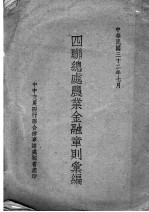 中華民國三十二年七月
四聯總處農業金融章則彙編
中中交農四行聯合辦事總處秘書處印